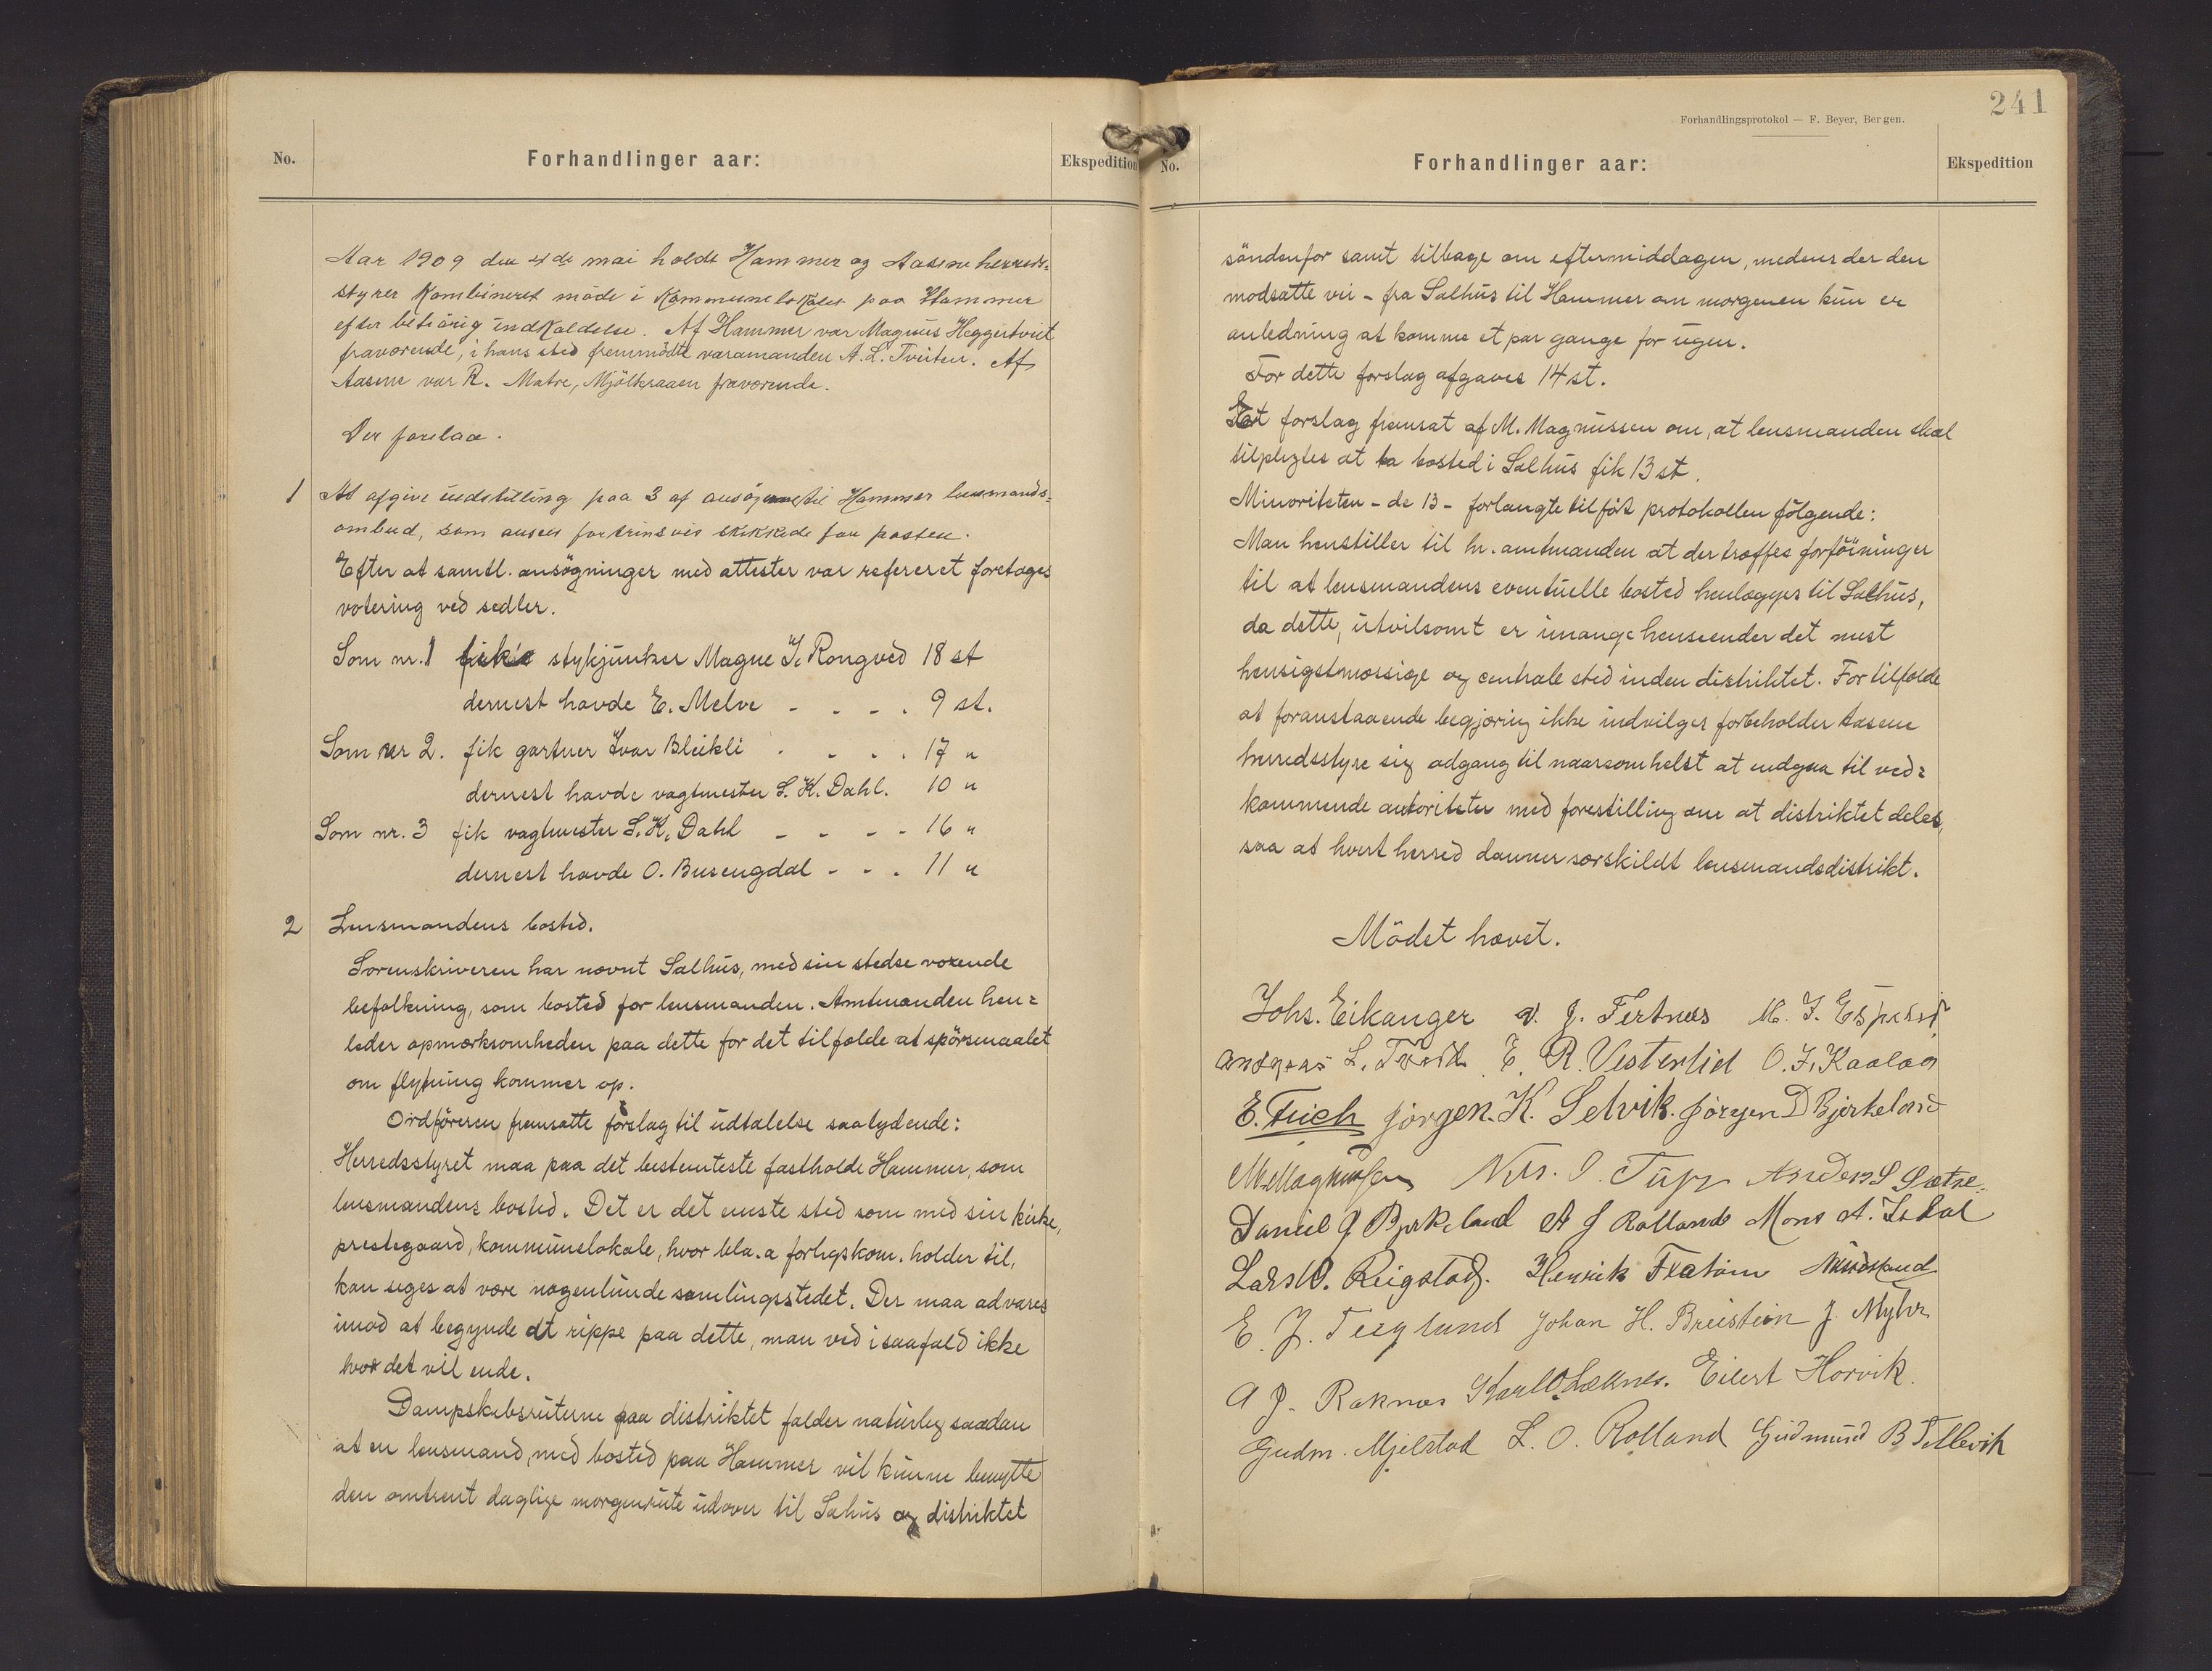 No.
Forhandlinger aar:
Ekspedition
Aar 1909 den 4de mai holdt Hammer og Aasene herreds-
styrer kombineret möde i kommunelokalet paa Hammer
efter behörig indkaldelse. Af Hammer var Magnus Heggertveit
fraværende, i hans sted fremmödte varamanden A. L. Tveiten. Af
Aasene var R. Matre, Mjölkeraaen fraværende.
Der forelaa.
1 At afgive indstilling paa 3 af ansögerne til Hammer lensmands-
ombud, som ansees fortrinsvis skikkede for posten.
Efter at samtl. ansøgninger med attester var refereret foretoges
votering ved sedler.
Som nr. 1 fik stykjunker Magne J. Rongved 18 st
dernest havde E. Melve - - - . 9 st.
Som nr 2. fik gartner Ivar Bleikli . - . . 17 "
dernest havde vagtmester S. K. Dahl. 10 "
Som nr. 3 fik vagtmester S. K. Dahl - - - - 16 "
dernest havde O. Busengdal - - . 11 "
2 Lensmandens bosted.
Sorenskriveren har nævnt Salhus, med sin stedse voxende
befolkning, som bosted for lensmanden. Amtmanden hen-
leder opmerksomheden paa dette for det tilfælde at spörsmaalet
om flytning kommer op.
Ordföreren fremsatte forslag til udtalelse saalydende:
Herredsstyret maa paa det bestemteste fastholde Hammer, som
lensmandens bosted. Det er det eneste sted som med sin kirke,
prestegaard, kommunelokale, hvor bla. a forligskom. holder til,
kan siges at være nogenlunde samlingsstedet. Der maa advares
imod at begynde at rippe paa dette, man ved isaafald ikke
hvor det vil ende.
Dampskibsruterne paa distriktet falder naturlig saadan
at en lensmand, med bosted paa Hammer vil kunne benytte
den omtrent daglige morgenrute udover til Salhus og distriktet
Forhandlingsprotokol — F. Beyer, Bergen.
241
No.
Forhandlinger aar:
Ekspedition
söndenfor samt tilbage om eftermiddagen, medens der den
modsatte vei - fra Salhus til Hammer om morgenen kun er
anledning at komme et par gange for ugen.
For dette forslag afgaves 14 st.
Et forslag fremsat af M. Magnussen om, at lensmanden skal
tilpligtes at ta bosted i Salhus fik 13 st.
Minoriteten - de 13 - forlangte tilföit protokollen fölgende:
Man henstiller til hr. amtmanden at der træffes forföininger
til at lensmandens eventuelle bosted henlægges til Salhus,
da dette, utvilsomt er i mange henseender det mest
hensigtmæssige og centrale sted inden distriktet. For tilfælde
at foranstaaende begjæring ikke indvilges forbeholder Aasene
herredsstyre sig adgang til naarsomhelst at indgaa til ved-
kommende autoriteter med forestilling om at distriktet deles,
saa at hvert herred danner særskildt lensmandsdistrikt.
Mödet hævet.
Johs. Eikanger A. J. Tertnæs M. J. Espelid
Anders L. Tveit E. R. Vesterlid O. J. Kaalaas
E. Frich Jörgen. K. Selvik. Jörgen D Bjerkeland
M. Magnussen Nils. O. Anders S Sætre.
Daniel J Bjerkeland A J Rolland Mons A.
Lars O. Reigstad. Henrik Flatöen
E. J. Teigland Johan H. Breistein J. Myhr
A J. Raknes Karl O. Loknes. Eilert Horvik.
Gudm. Mjelstad L. O. Rolland Gudmund B Tellevik